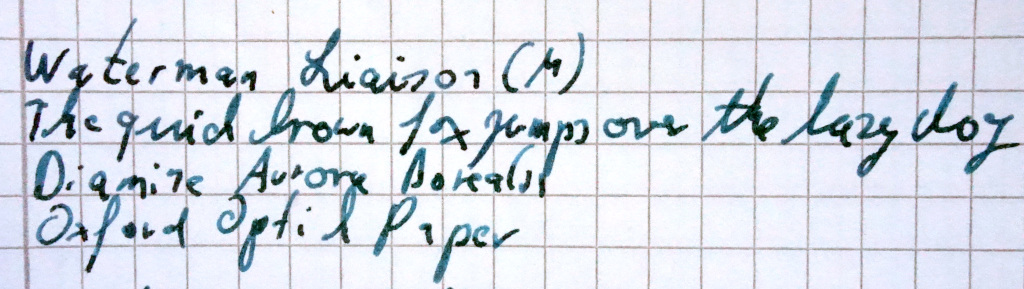 Waterman Liaison (M)
The quick brown fox jumps over the lazy dog
Diamine Aurora Borealis
Oxford Optik Paper